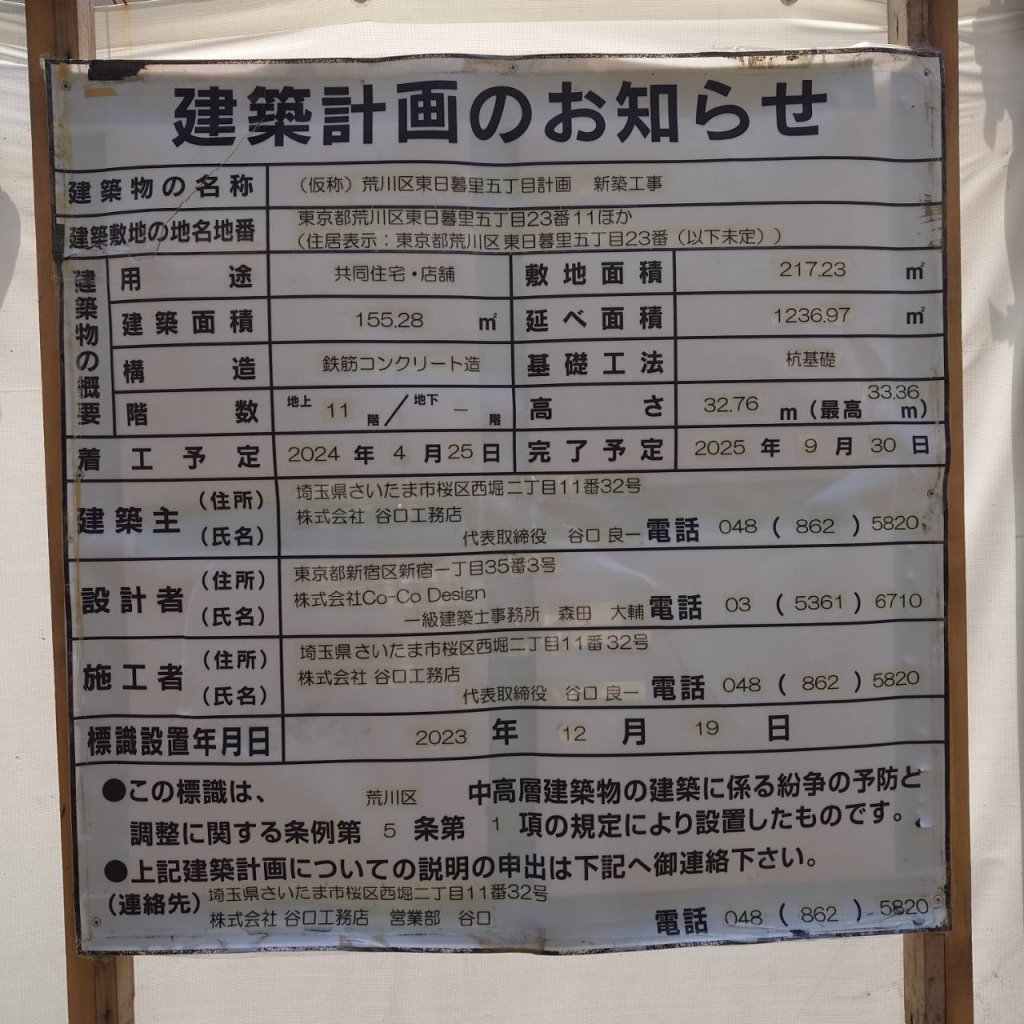 建築計画のお知らせ
建築物の名称 （仮称）荒川区東日暮里五丁目計画 新築工事
建築敷地の地名地番 東京都荒川区東日暮里五丁目23番11ほか
（住居表示：東京都荒川区東日暮里五丁目23番（以下未定））
建築物の概要
用途 共同住宅・店舗 敷地面積 217.23 ㎡
建築面積 155.28 ㎡ 延べ面積 1236.97 ㎡
構造 鉄筋コンクリート造 基礎工法 杭基礎
階数 地上 11 階／地下 － 階 高さ 32.76 m（最高 33.36 m）
着工予定 2024 年 4 月 25 日 完了予定 2025 年 9 月 30 日
建築主 （住所） 埼玉県さいたま市桜区西堀二丁目11番32号
株式会社 谷口工務店
（氏名） 代表取締役 谷口 良一 電話 048 （ 862 ） 5820
設計者 （住所） 東京都新宿区新宿一丁目35番3号
株式会社Co-Co Design
（氏名） 一級建築士事務所 森田 大輔 電話 03 （ 5361 ） 6710
施工者 （住所） 埼玉県さいたま市桜区西堀二丁目11番32号
株式会社 谷口工務店
（氏名） 代表取締役 谷口 良一 電話 048 （ 862 ） 5820
標識設置年月日 2023 年 12 月 19 日
●この標識は、 荒川区 中高層建築物の建築に係る紛争の予防と
調整に関する条例第 5 条第 1 項の規定により設置したものです。
●上記建築計画についての説明の申出は下記へ御連絡下さい。
（連絡先） 埼玉県さいたま市桜区西堀二丁目11番32号
株式会社 谷口工務店 営業部 谷口 電話 048 （ 862 ） 5820